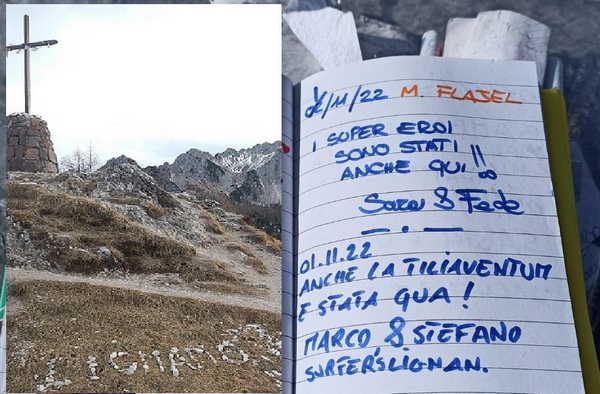 /11/22 M. FLAJEL
I SUPER EROI
SONO STATI
ANCHE QUI !!
Sara & Fede
01.11.22
ANCHE LA TILIAVENTUM
E STATA QUA!
MARCO & STEFANO
SURFER'S LIGNAN.